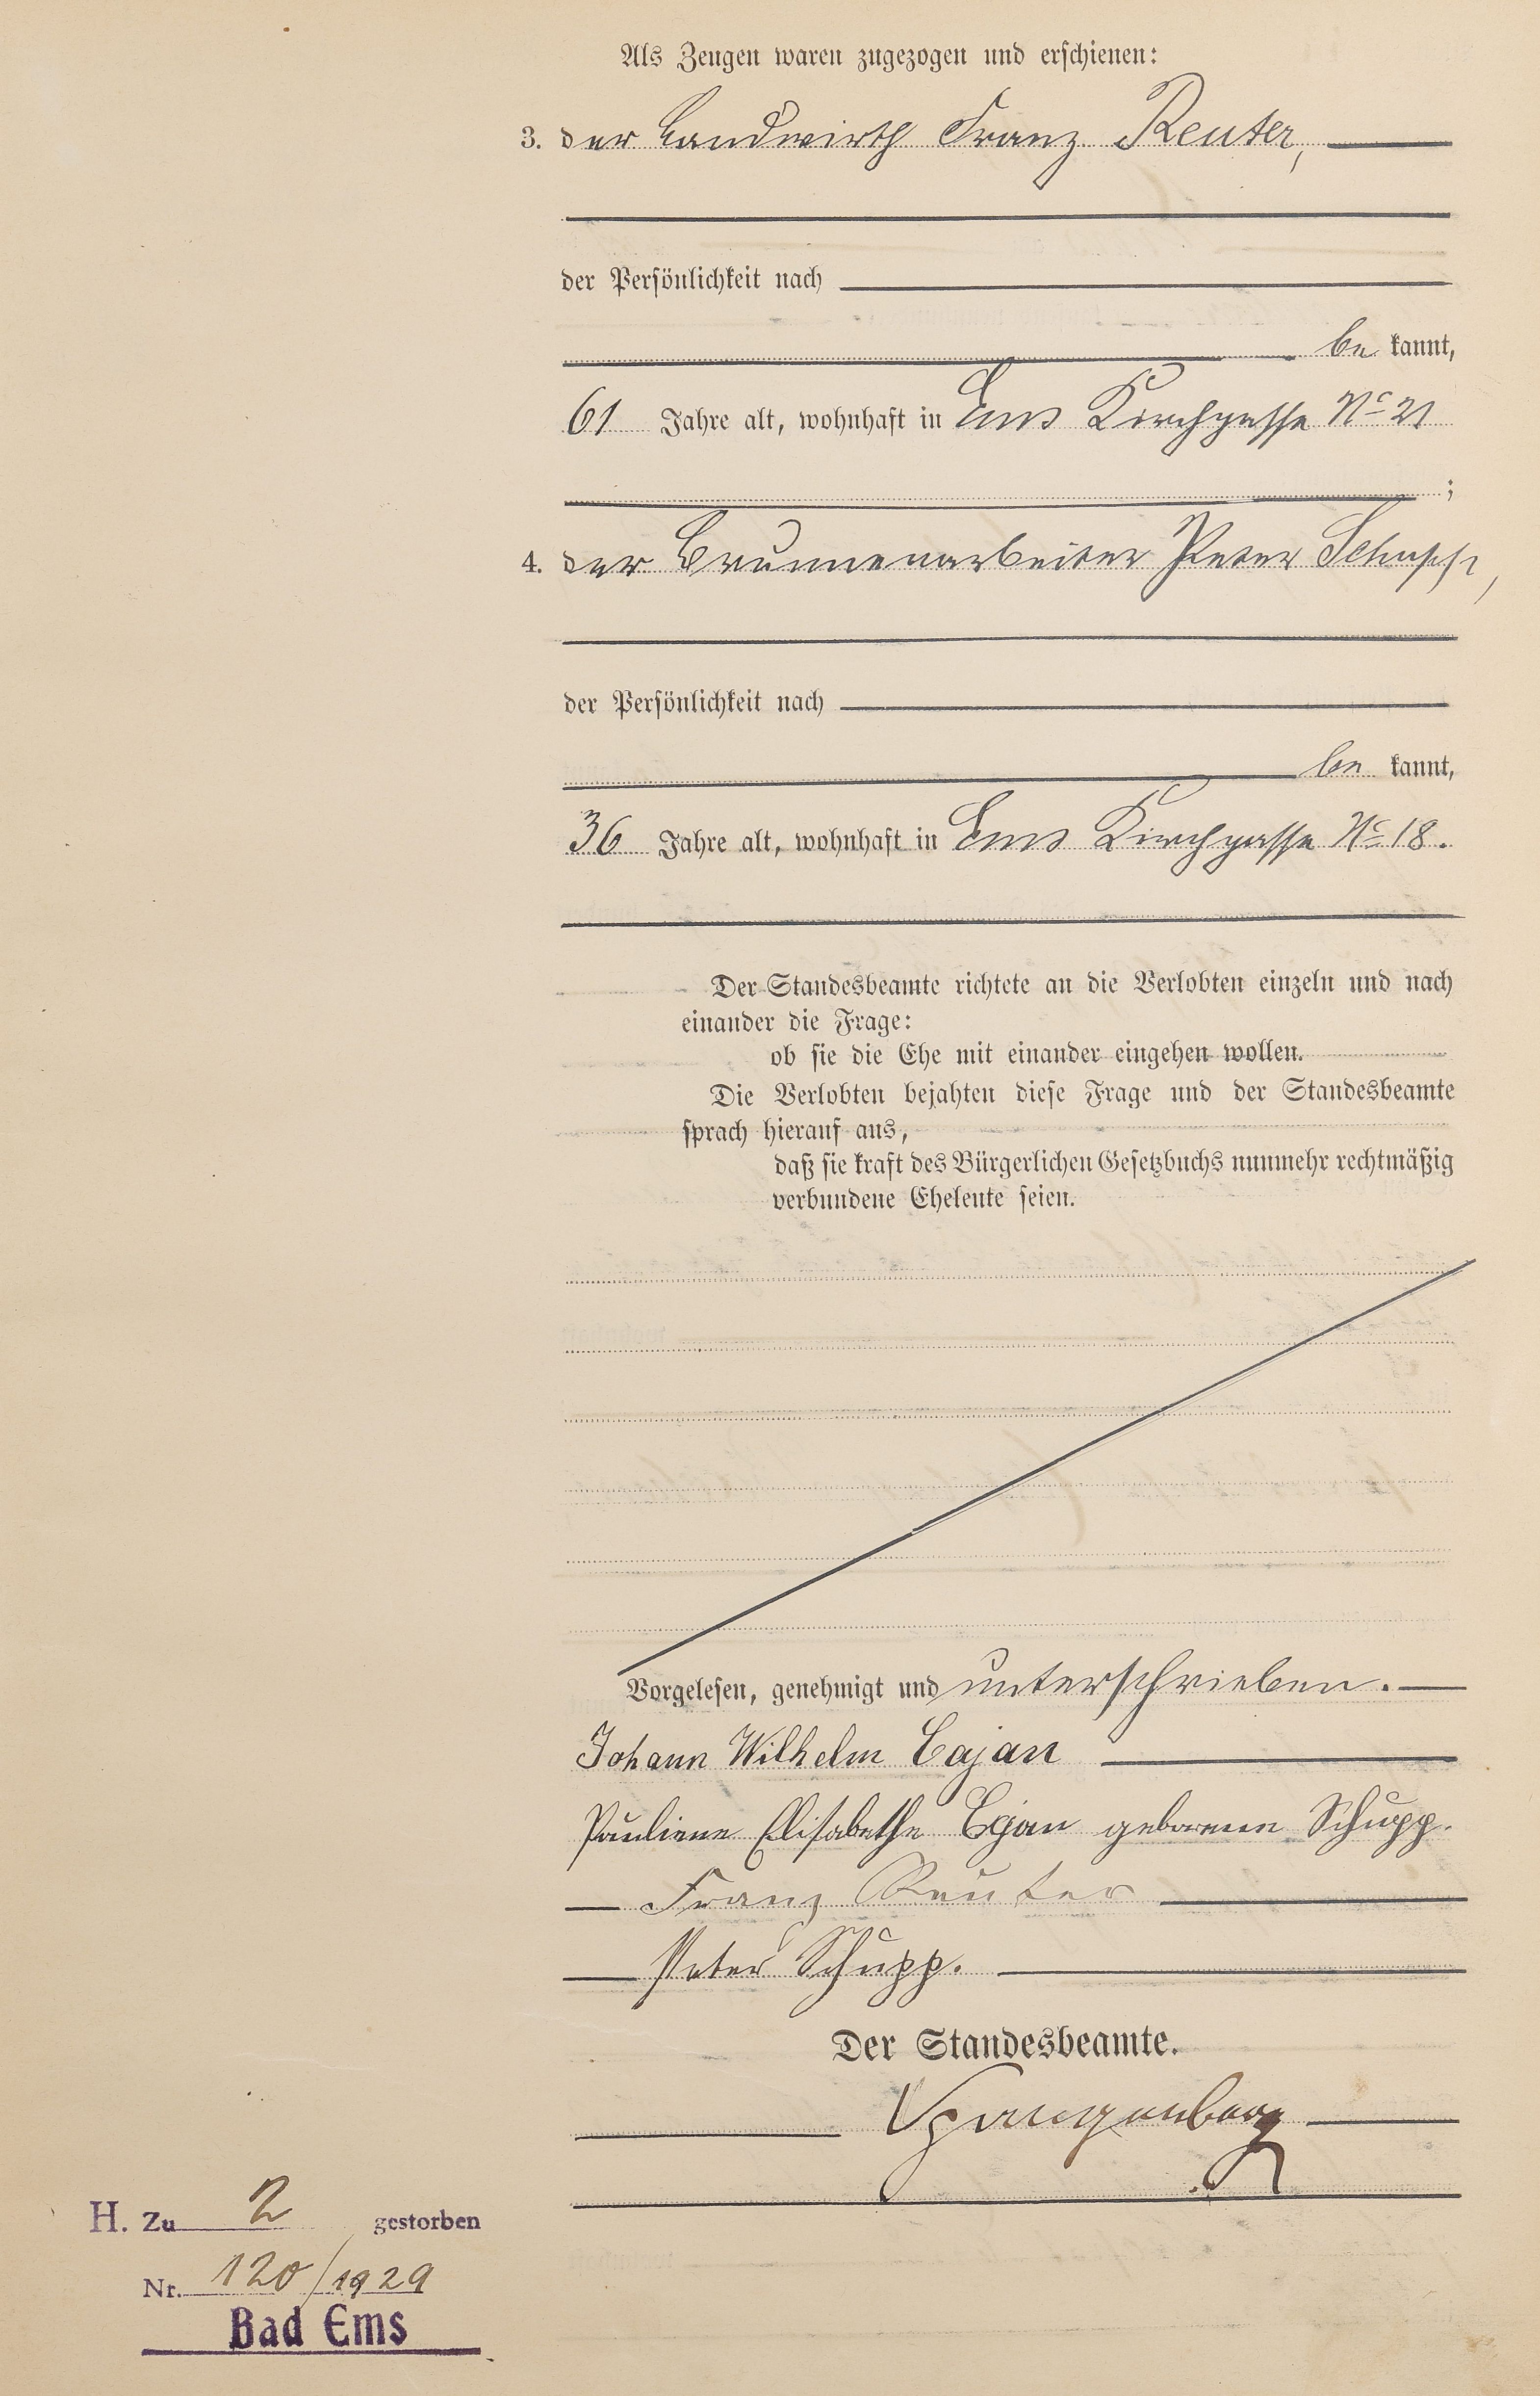 Als Zeugen waren zugezogen und erschienen:
3. der Landwirth Franz Reuter,
der Persönlichkeit nach
be kannt,
61 Jahre alt, wohnhaft in Ems Kirchgasse No 21
;
4. der Brunnenarbeiter Peter Schupp,
der Persönlichkeit nach
be kannt,
36 Jahre alt, wohnhaft in Ems Kirchgasse No 18.
Der Standesbeamte richtete an die Verlobten einzeln und nach
einander die Frage:
ob sie die Ehe mit einander eingehen wollen.
Die Verlobten bejahten diese Frage und der Standesbeamte
sprach hierauf aus,
daß sie kraft des Bürgerlichen Gesetzbuchs nunmehr rechtmäßig
verbundene Eheleute seien.
Vorgelesen, genehmigt und unterschrieben.
Johann Wilhelm Cajan
Pauliene Elisabethe Cajan geborenen Schupp.
Franz Reuter
Peter Schupp.
Der Standesbeamte.
Spangenberg
H. Zu 2 gestorben
Nr. 120/1929
Bad Ems